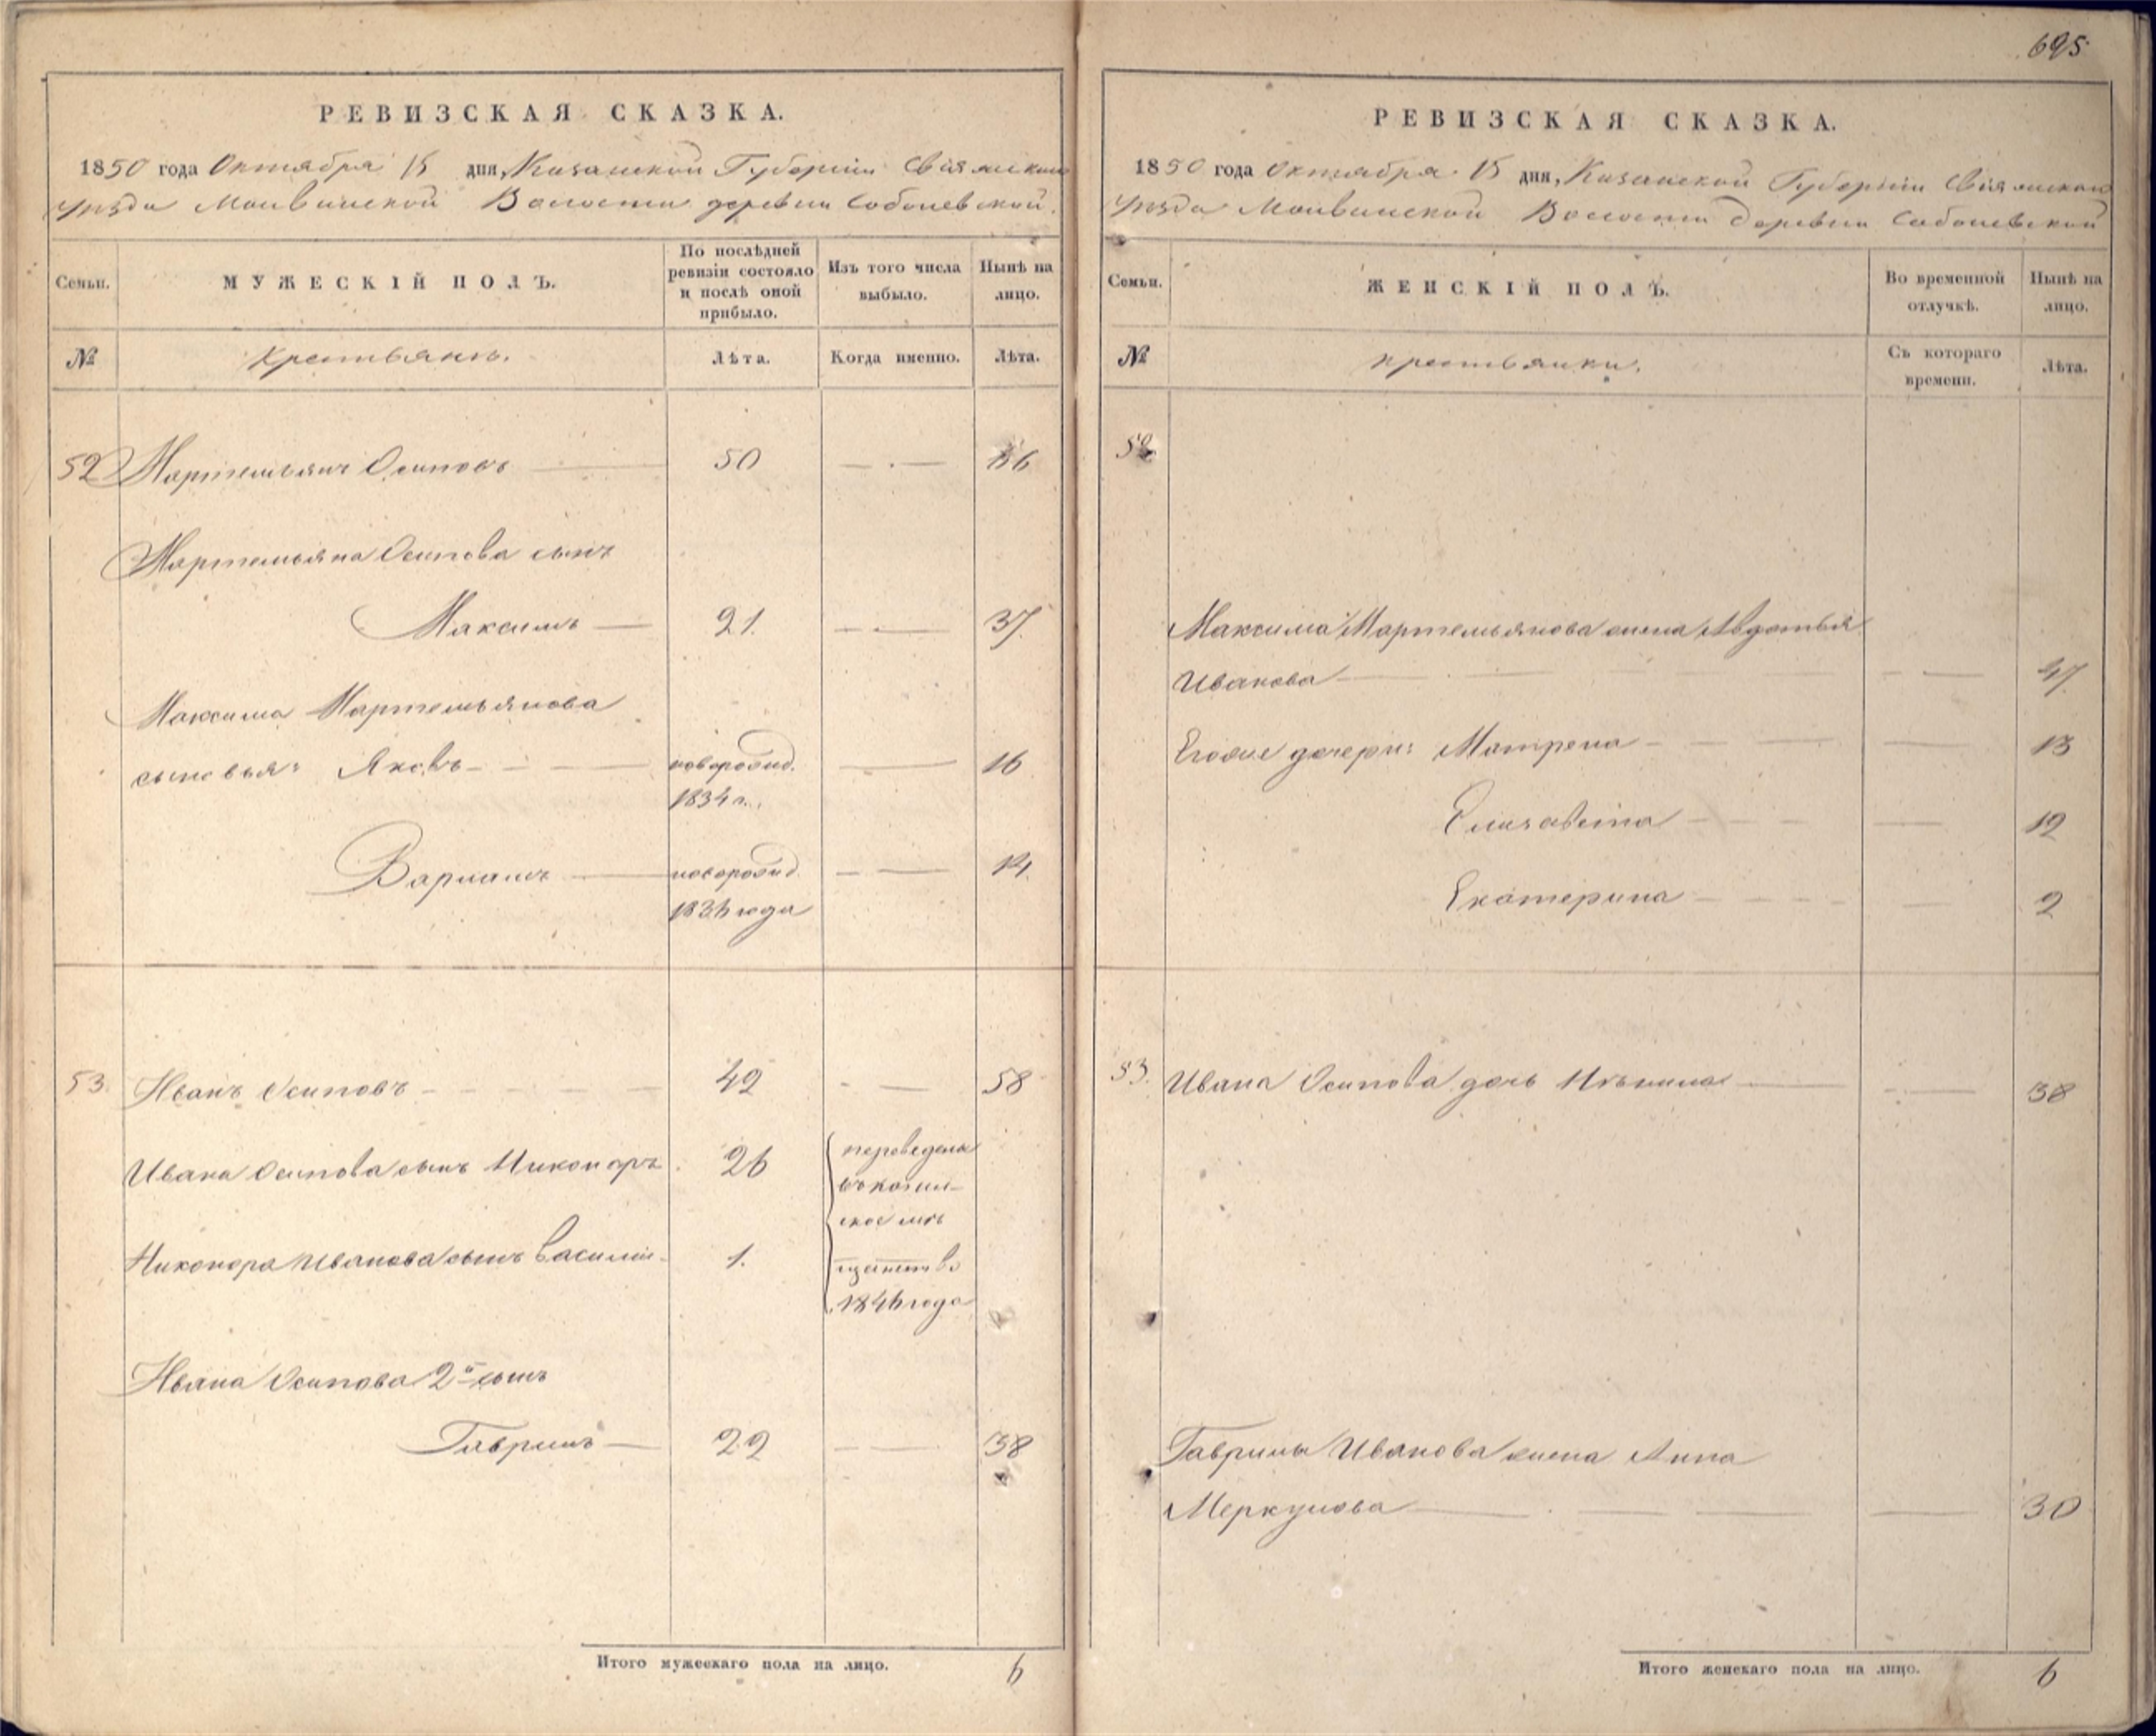 695
РЕВИЗСКАЯ СКАЗКА.
1850 года Октября 15 дня, Казанской Губернии Свіяжскаго
уѣзда Моквинской Волости деревни Соболевской.
Семьи.
МУЖЕСКІЙ ПОЛЪ.
По послѣдней ревизіи состояло и послѣ оной прибыло.
Изъ того числа выбыло.
Нынѣ на лицо.
№
Крестьяне.
Лѣта.
Когда именно.
Лѣта.
52 Мартемьянъ Осиповъ 50
Мартемьяна Осипова сынъ
Максимъ 21. 37
Максима Мартемьянова
сыновья: Яковъ новорожд. 16
1834 г.
Варламъ новорожд. 14.
1836 года
53. Иванъ Осиповъ 42 58
Ивана Осипова сынъ Никоноръ 26
Никонора Иванова сынъ Василій 1.
переведены
въ казан-
ское мѣ-
щанство
1846 года
Ивана Осипова 2й сынъ
Гаврилъ 22 38
Итого мужескаго пола на лицо. 6
РЕВИЗСКАЯ СКАЗКА.
1850 года Октября 15 дня, Казанской Губерніи Свіяжскаго
уѣзда Моквинской Волости деревни Соболевской
Семьи.
ЖЕНСКІЙ ПОЛЪ.
Во временной отлучкѣ.
Нынѣ на лицо.
№
крестьянки.
Съ котораго времени.
Лѣта.
52
Максима Мартемьянова жена Авдотья
Иванова 47
Егоже дочери: Матрена 13
Елисавета 12
Екатерина 2
53. Ивана Осипова дочь 38
Гаврилы Иванова жена Анна
Меркулова 30
Итого женскаго пола на лицо. 6